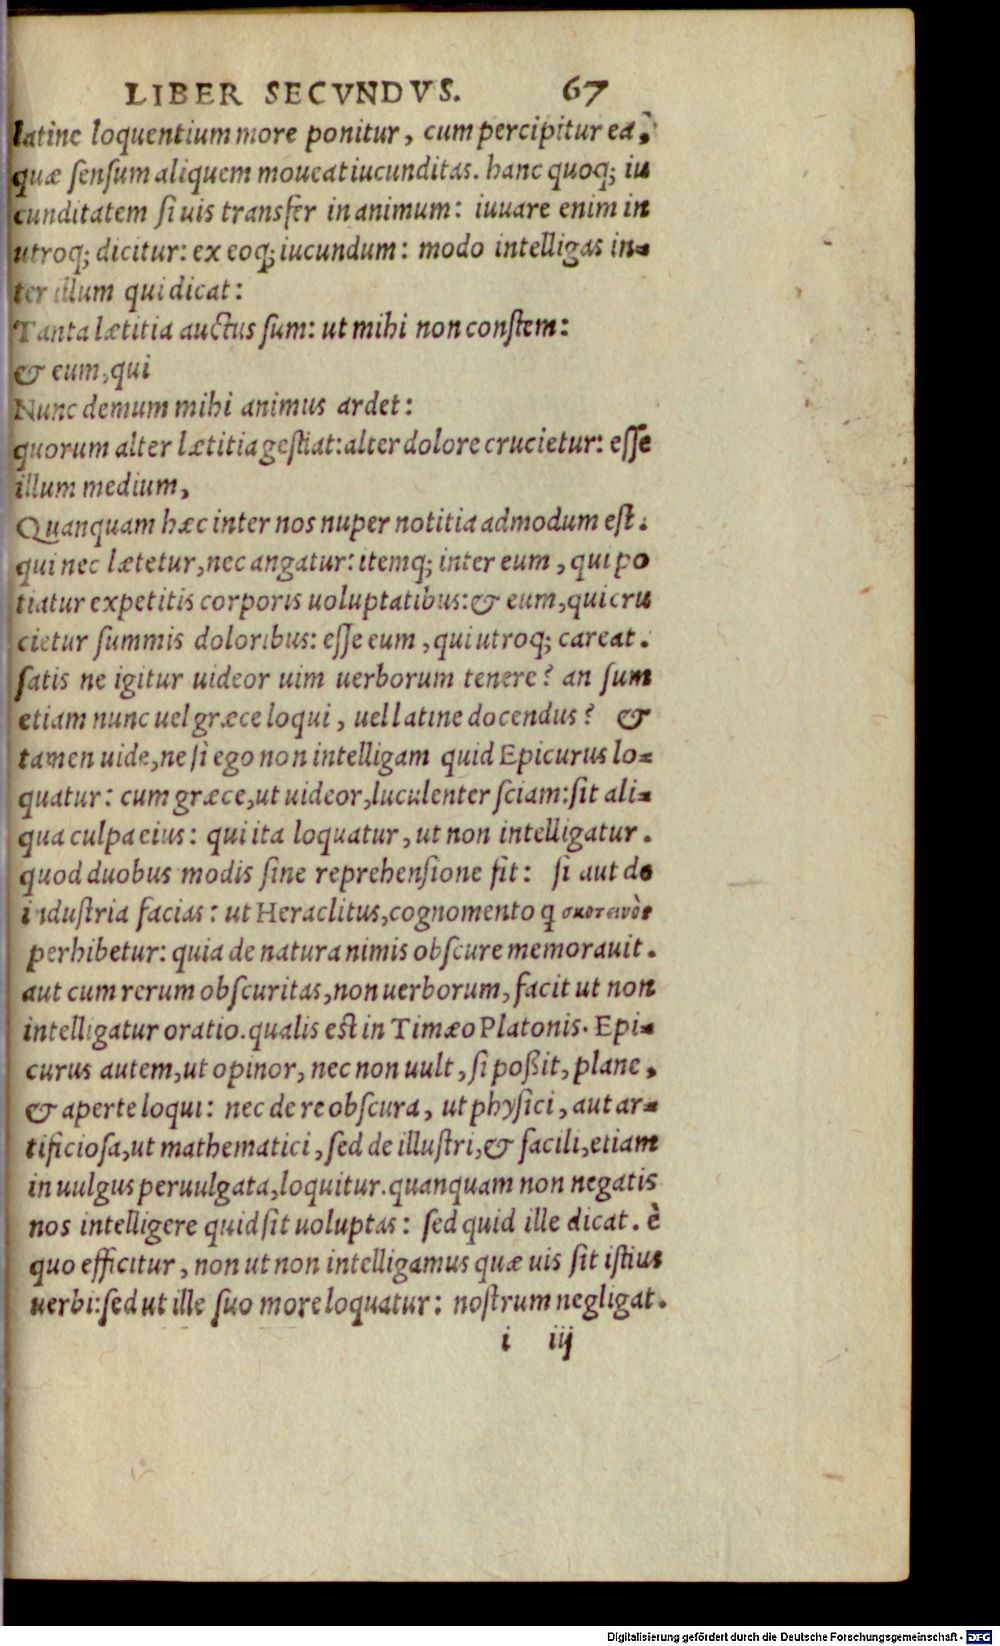 LIBER SECVNDVS. 67
latine loquentium more ponitur, cum percipitur ea,
quæ sensum aliquem moueat iucunditas. hanc quoq; iu
cunditatem si uis transfer in animum: iuuare enim in
utroq; dicitur: ex eoq; iucundum: modo intelligas in-
ter illum qui dicat:
Tanta lætitia auctus sum: ut mihi non constem:
& eum, qui
Nunc demum mihi animus ardet:
quorum alter lætitia gestiat: alter dolore crucietur: esse
illum medium,
Quanquam hæc inter nos nuper notitia admodum est.
qui nec lætetur, nec angatur: itemq; inter eum, qui po
tiatur expetitis corporis uoluptatibus: & eum, qui cru
cietur summis doloribus: esse eum, qui utroq; careat.
satis ne igitur uideor uim uerborum tenere? an sum
etiam nunc uel græce loqui, uel latine docendus? &
tamen uide, ne si ego non intelligam quid Epicurus lo-
quatur: cum græce, ut uideor, luculenter sciam: sit ali-
qua culpa eius: qui ita loquatur, ut non intelligatur.
quod duobus modis sine reprehensione fit: si aut de
industria facias: ut Heraclitus, cognomento q σκοτεινὸς
perhibetur: quia de natura nimis obscure memorauit.
aut cum rerum obscuritas, non uerborum, facit ut non
intelligatur oratio. qualis est in Timæo Platonis. Epi-
curus autem, ut opinor, nec non uult, si poßit, plane,
& aperte loqui: nec de re obscura, ut physici, aut ar-
tificiosa, ut mathematici, sed de illustri, & facili, etiam
in uulgus peruulgata, loquitur. quanquam non negatis
nos intelligere quid sit uoluptas: sed quid ille dicat. è
quo efficitur, non ut non intelligamus quæ uis sit istius
uerbi: sed ut ille suo more loquatur: nostrum negligat.
i iij
Digitalisierung gefördert durch die Deutsche Forschungsgemeinschaft - DFG